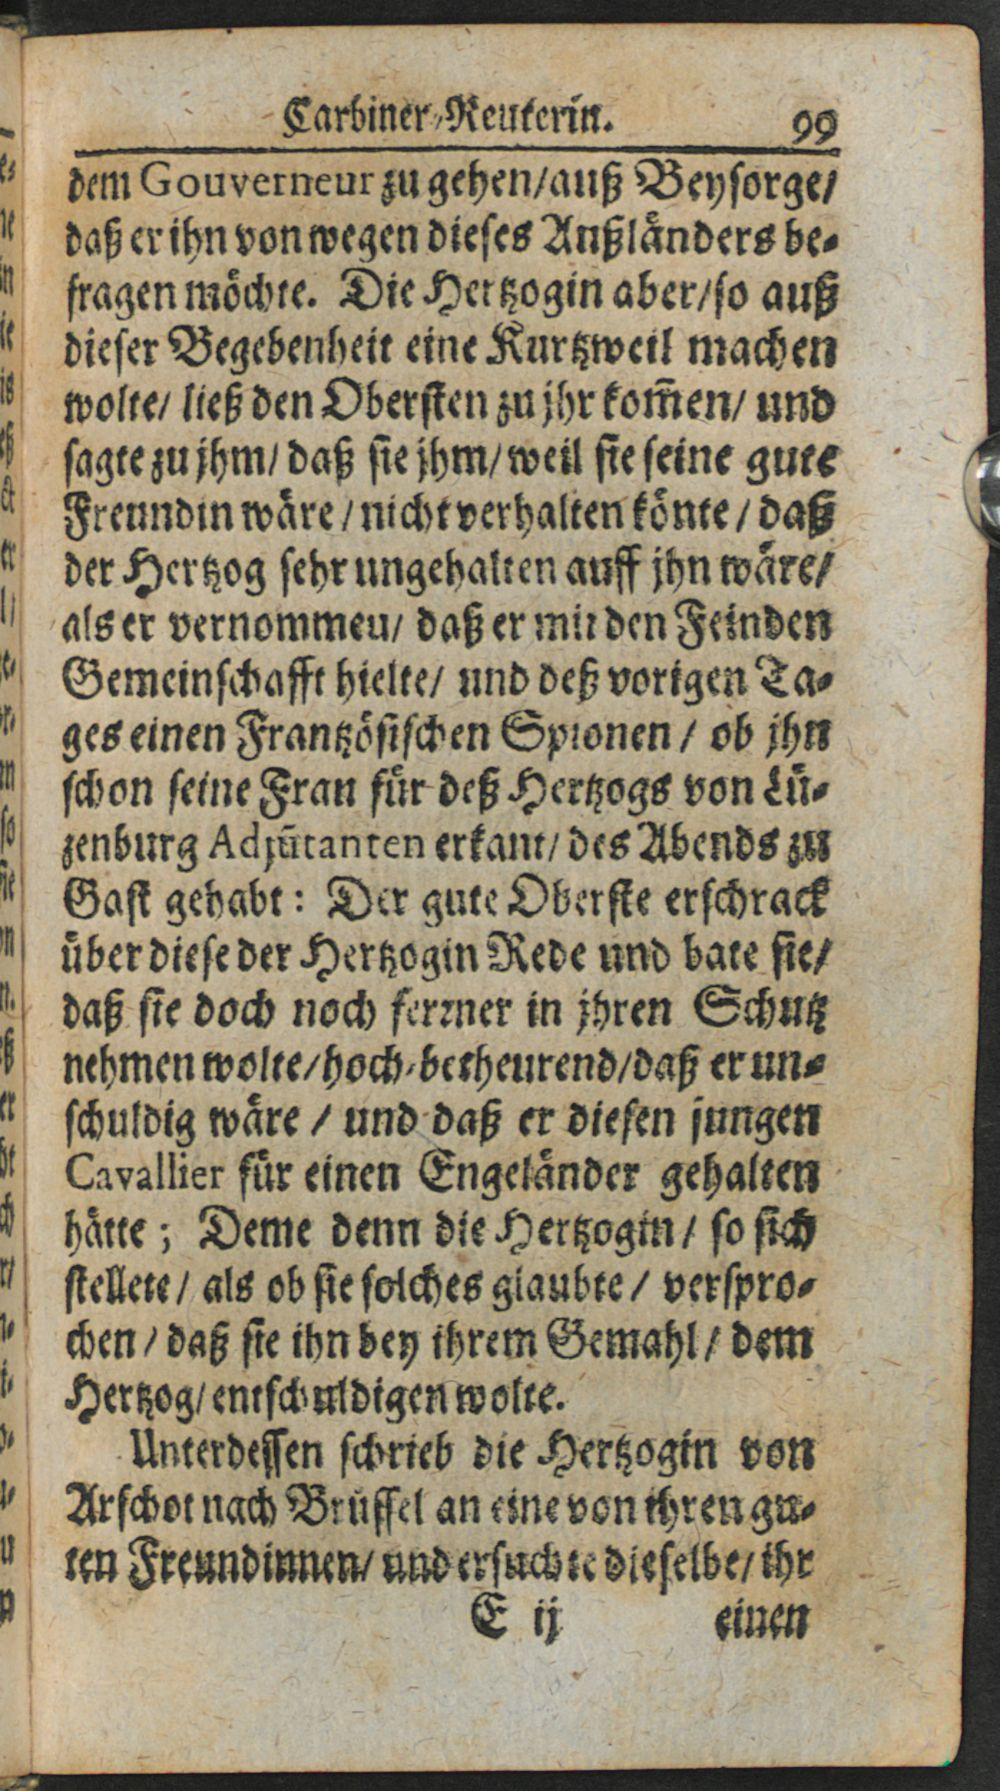 Carbiner-Reuterin. 99
dem Gouverneur zu gehen/auß Beysorge/
daß er ihn von wegen dieses Außländers be-
fragen möchte. Die Hertzogin aber/so auß
dieser Begebenheit eine Kurtzweil machen
wolte/ ließ den Obersten zu jhr kom̄en/ und
sagte zu jhm/ daß sie jhm/ weil sie seine gute
Freundin wäre / nicht verhalten könte / daß
der Hertzog sehr ungehalten auff jhn wäre/
als er vernommeu/ daß er mit den Feinden
Gemeinschafft hielte/ und deß vorigen Ta-
ges einen Frantzösischen Spionen / ob jhn
schon seine Frau für deß Hertzogs von Lü-
zenburg Adjūtanten erkant/ des Abends zu
Gast gehabt: Der gute Oberste erschrack
über diese der Hertzogin Rede und bate sie/
daß sie doch noch ferrner in jhren Schutz
nehmen wolte/hoch-betheurend/daß er un-
schuldig wäre / und daß er diesen jungen
Cavallier für einen Engeländer gehalten
hätte ; Deme denn die Hertzogin / so sich
stellete / als ob sie solches glaubte / verspro-
chen / daß sie ihn bey ihrem Gemahl / dem
Hertzog/ entschuldigen wolte.
Unterdessen schrieb die Hertzogin von
Arschot nach Brüssel an eine von ihren gu-
ten Freundinnen/ und ersuchte dieselbe/ ihr
E ij einen